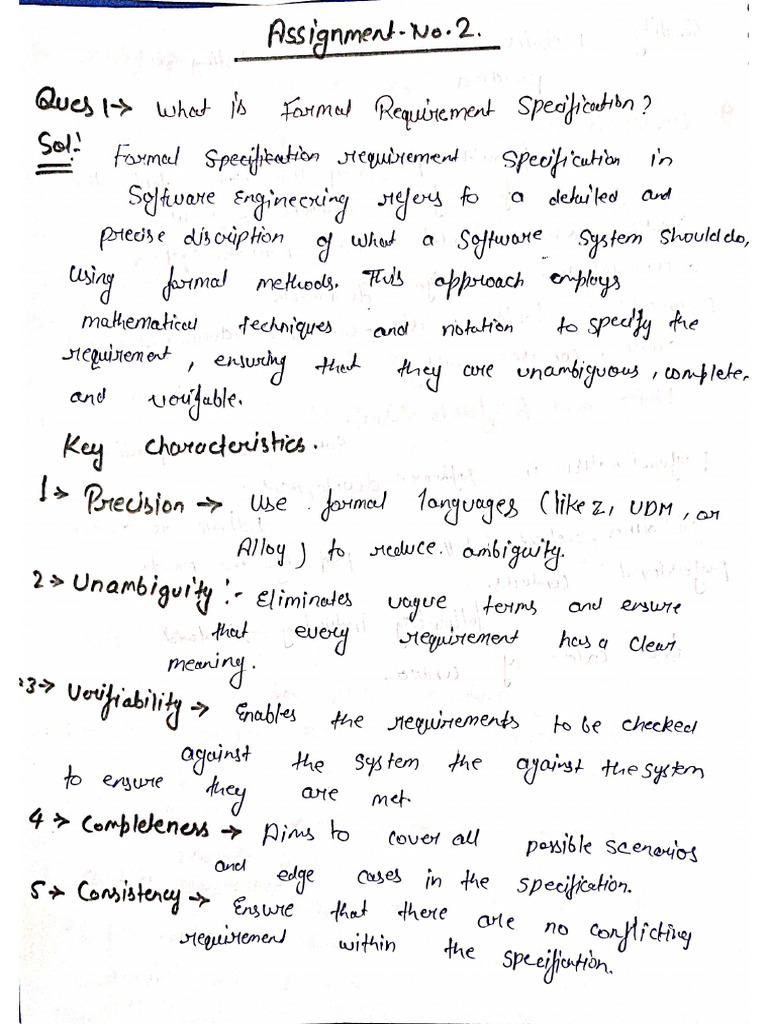 Assignment-No.2.
Ques 1-> What is Formal Requirement Specification?
Sol:-
Formal Specification requirement Specification in
Software Engineering refers to a detailed and
precise discription of what a Software System should do,
using formal methods. This approach employs
mathematical techniques and notation to specify the
requirement, ensuring that they are unambiguous, complete,
and verifable.
Key Characteristics.
1-> Precision -> Use formal languages (like Z, UDM, or
Alloy) to reduce ambiguity.
2-> Unambiguity :- Eliminates vague terms and ensure
that every requirement has a clear
meaning.
3-> Verifiability -> Enables the requirements to be checked
against the system the against the system
to ensure they are met.
4-> Completeness -> Aims to cover all possible scenarios
and edge cases in the specification.
5-> Consistency -> Ensure that there are no conflicting
requirement within the specification.